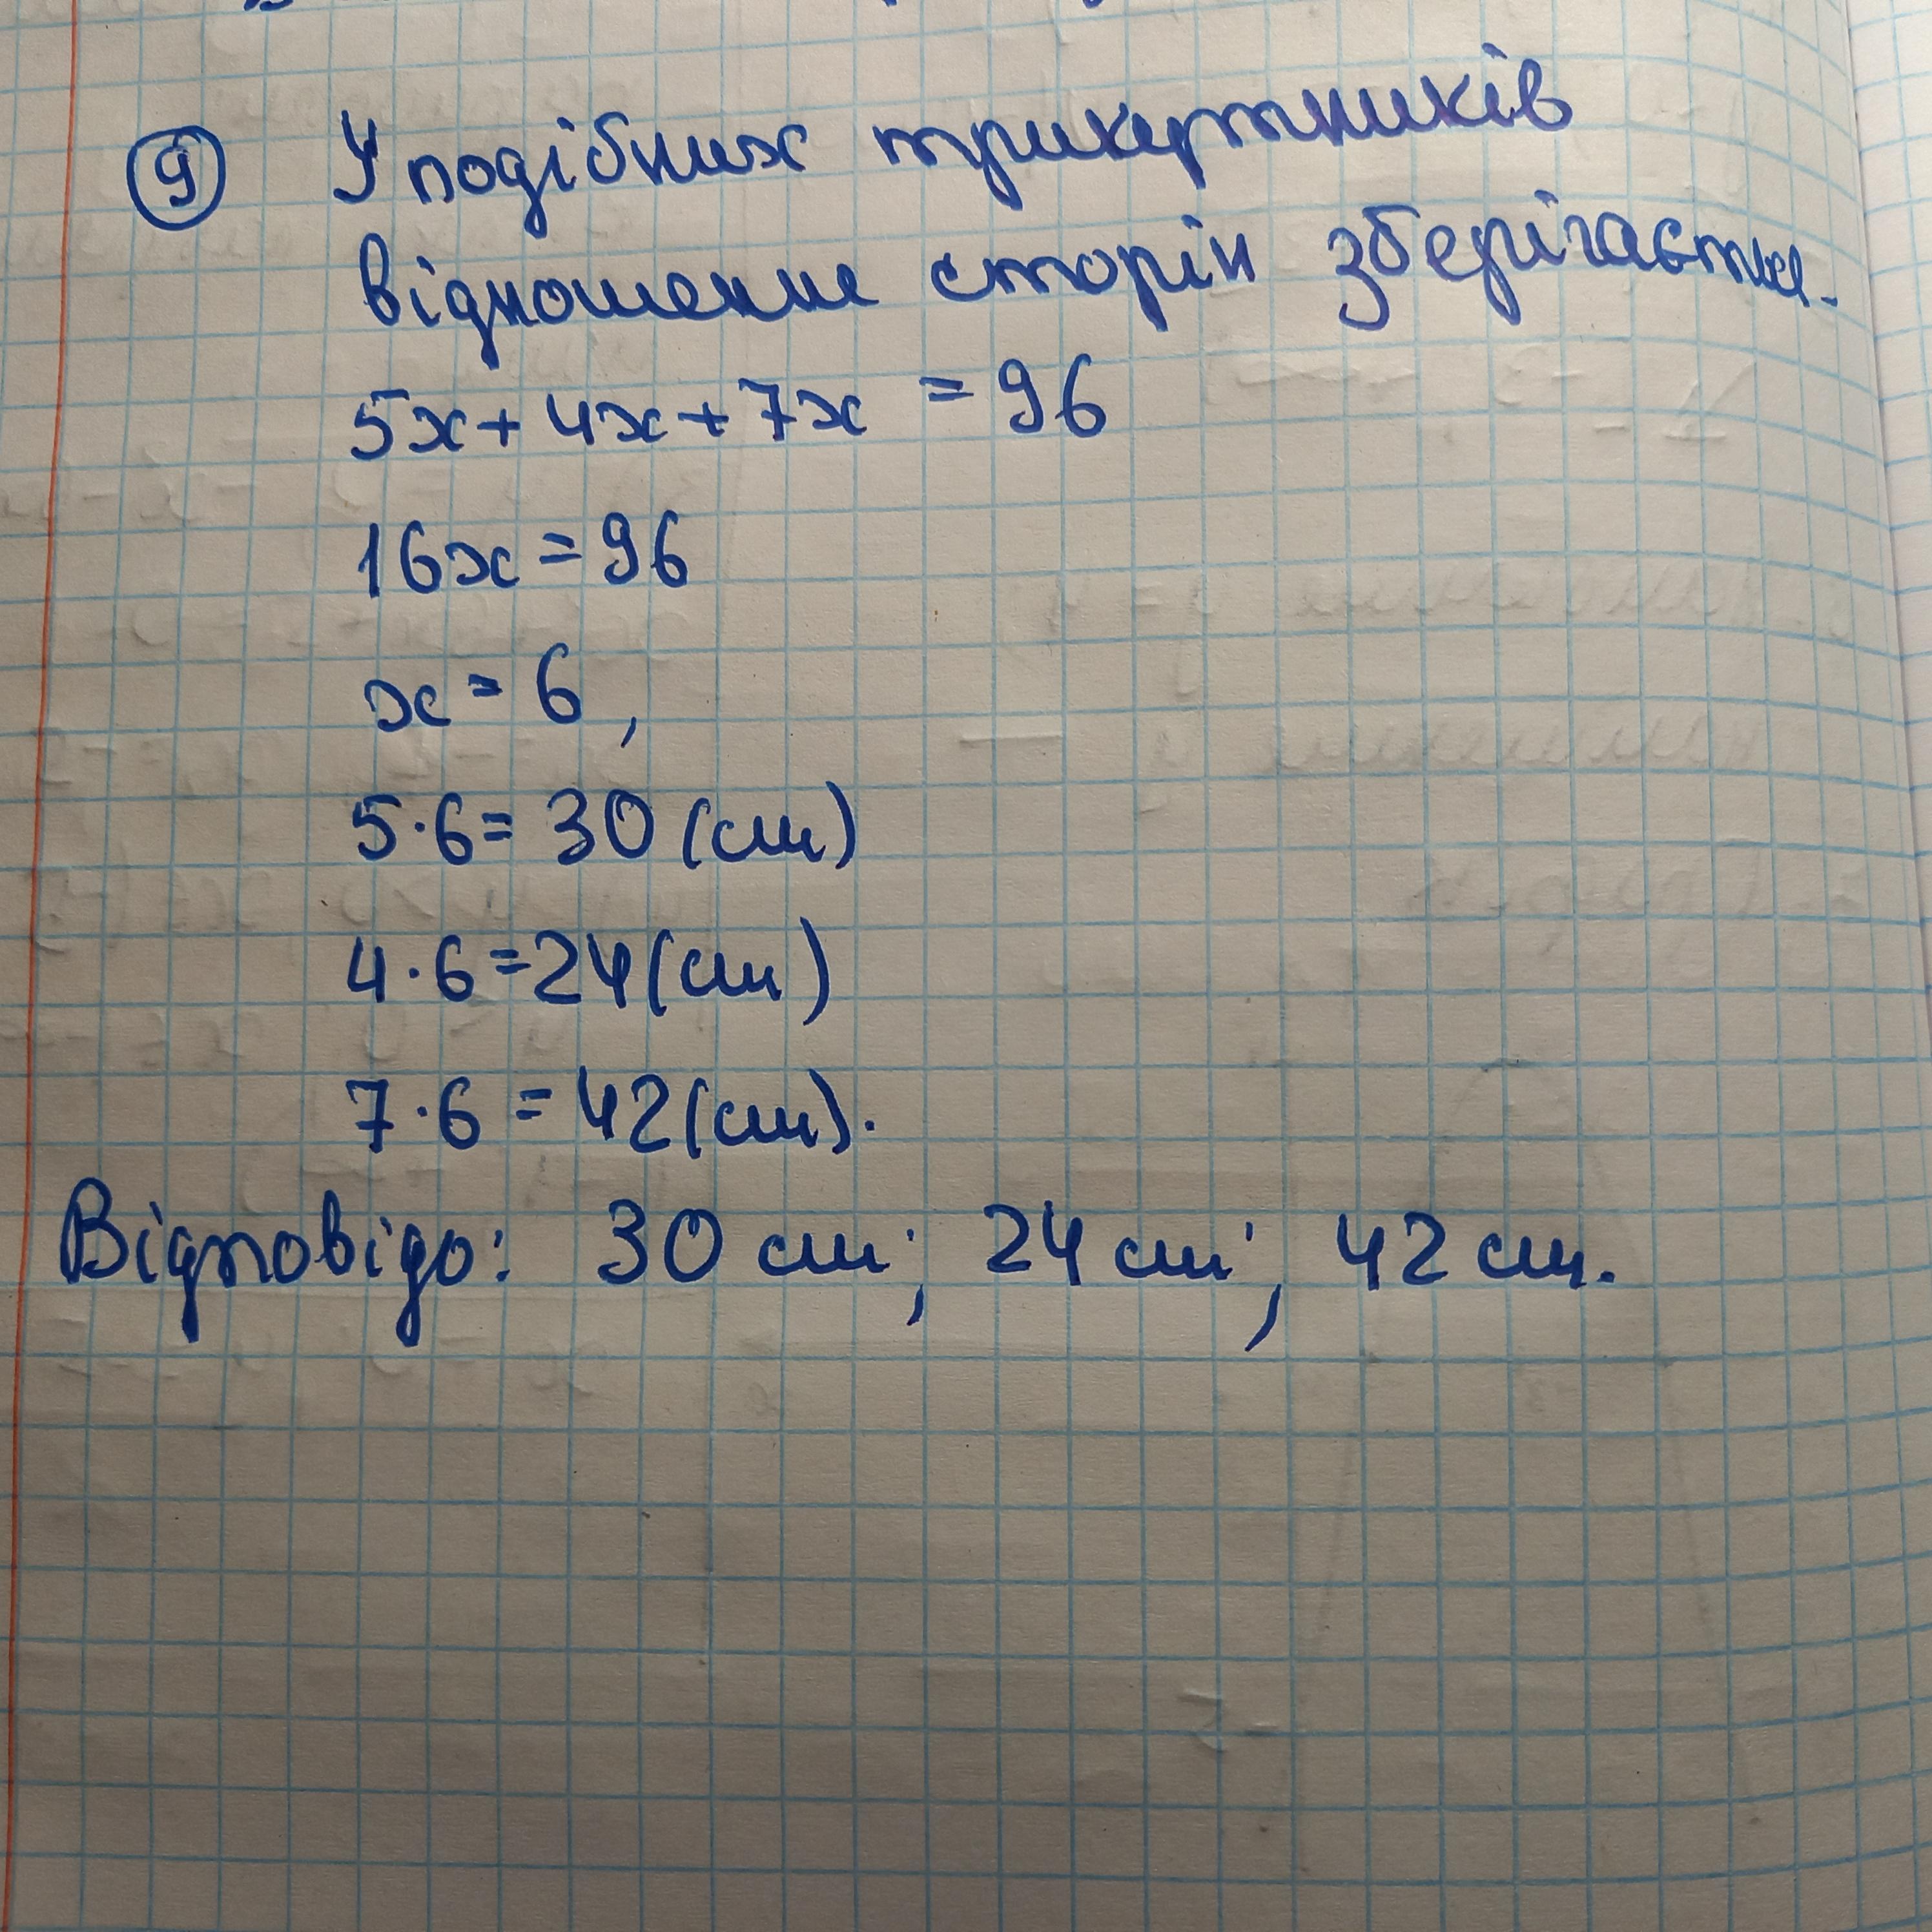 9 У подібних трикутників
відношення сторін зберігається.
5x + 4x + 7x = 96
16x = 96
x = 6,
5·6 = 30 (см)
4·6 = 24 (см)
7·6 = 42 (см).
Відповідь: 30 см; 24 см; 42 см.